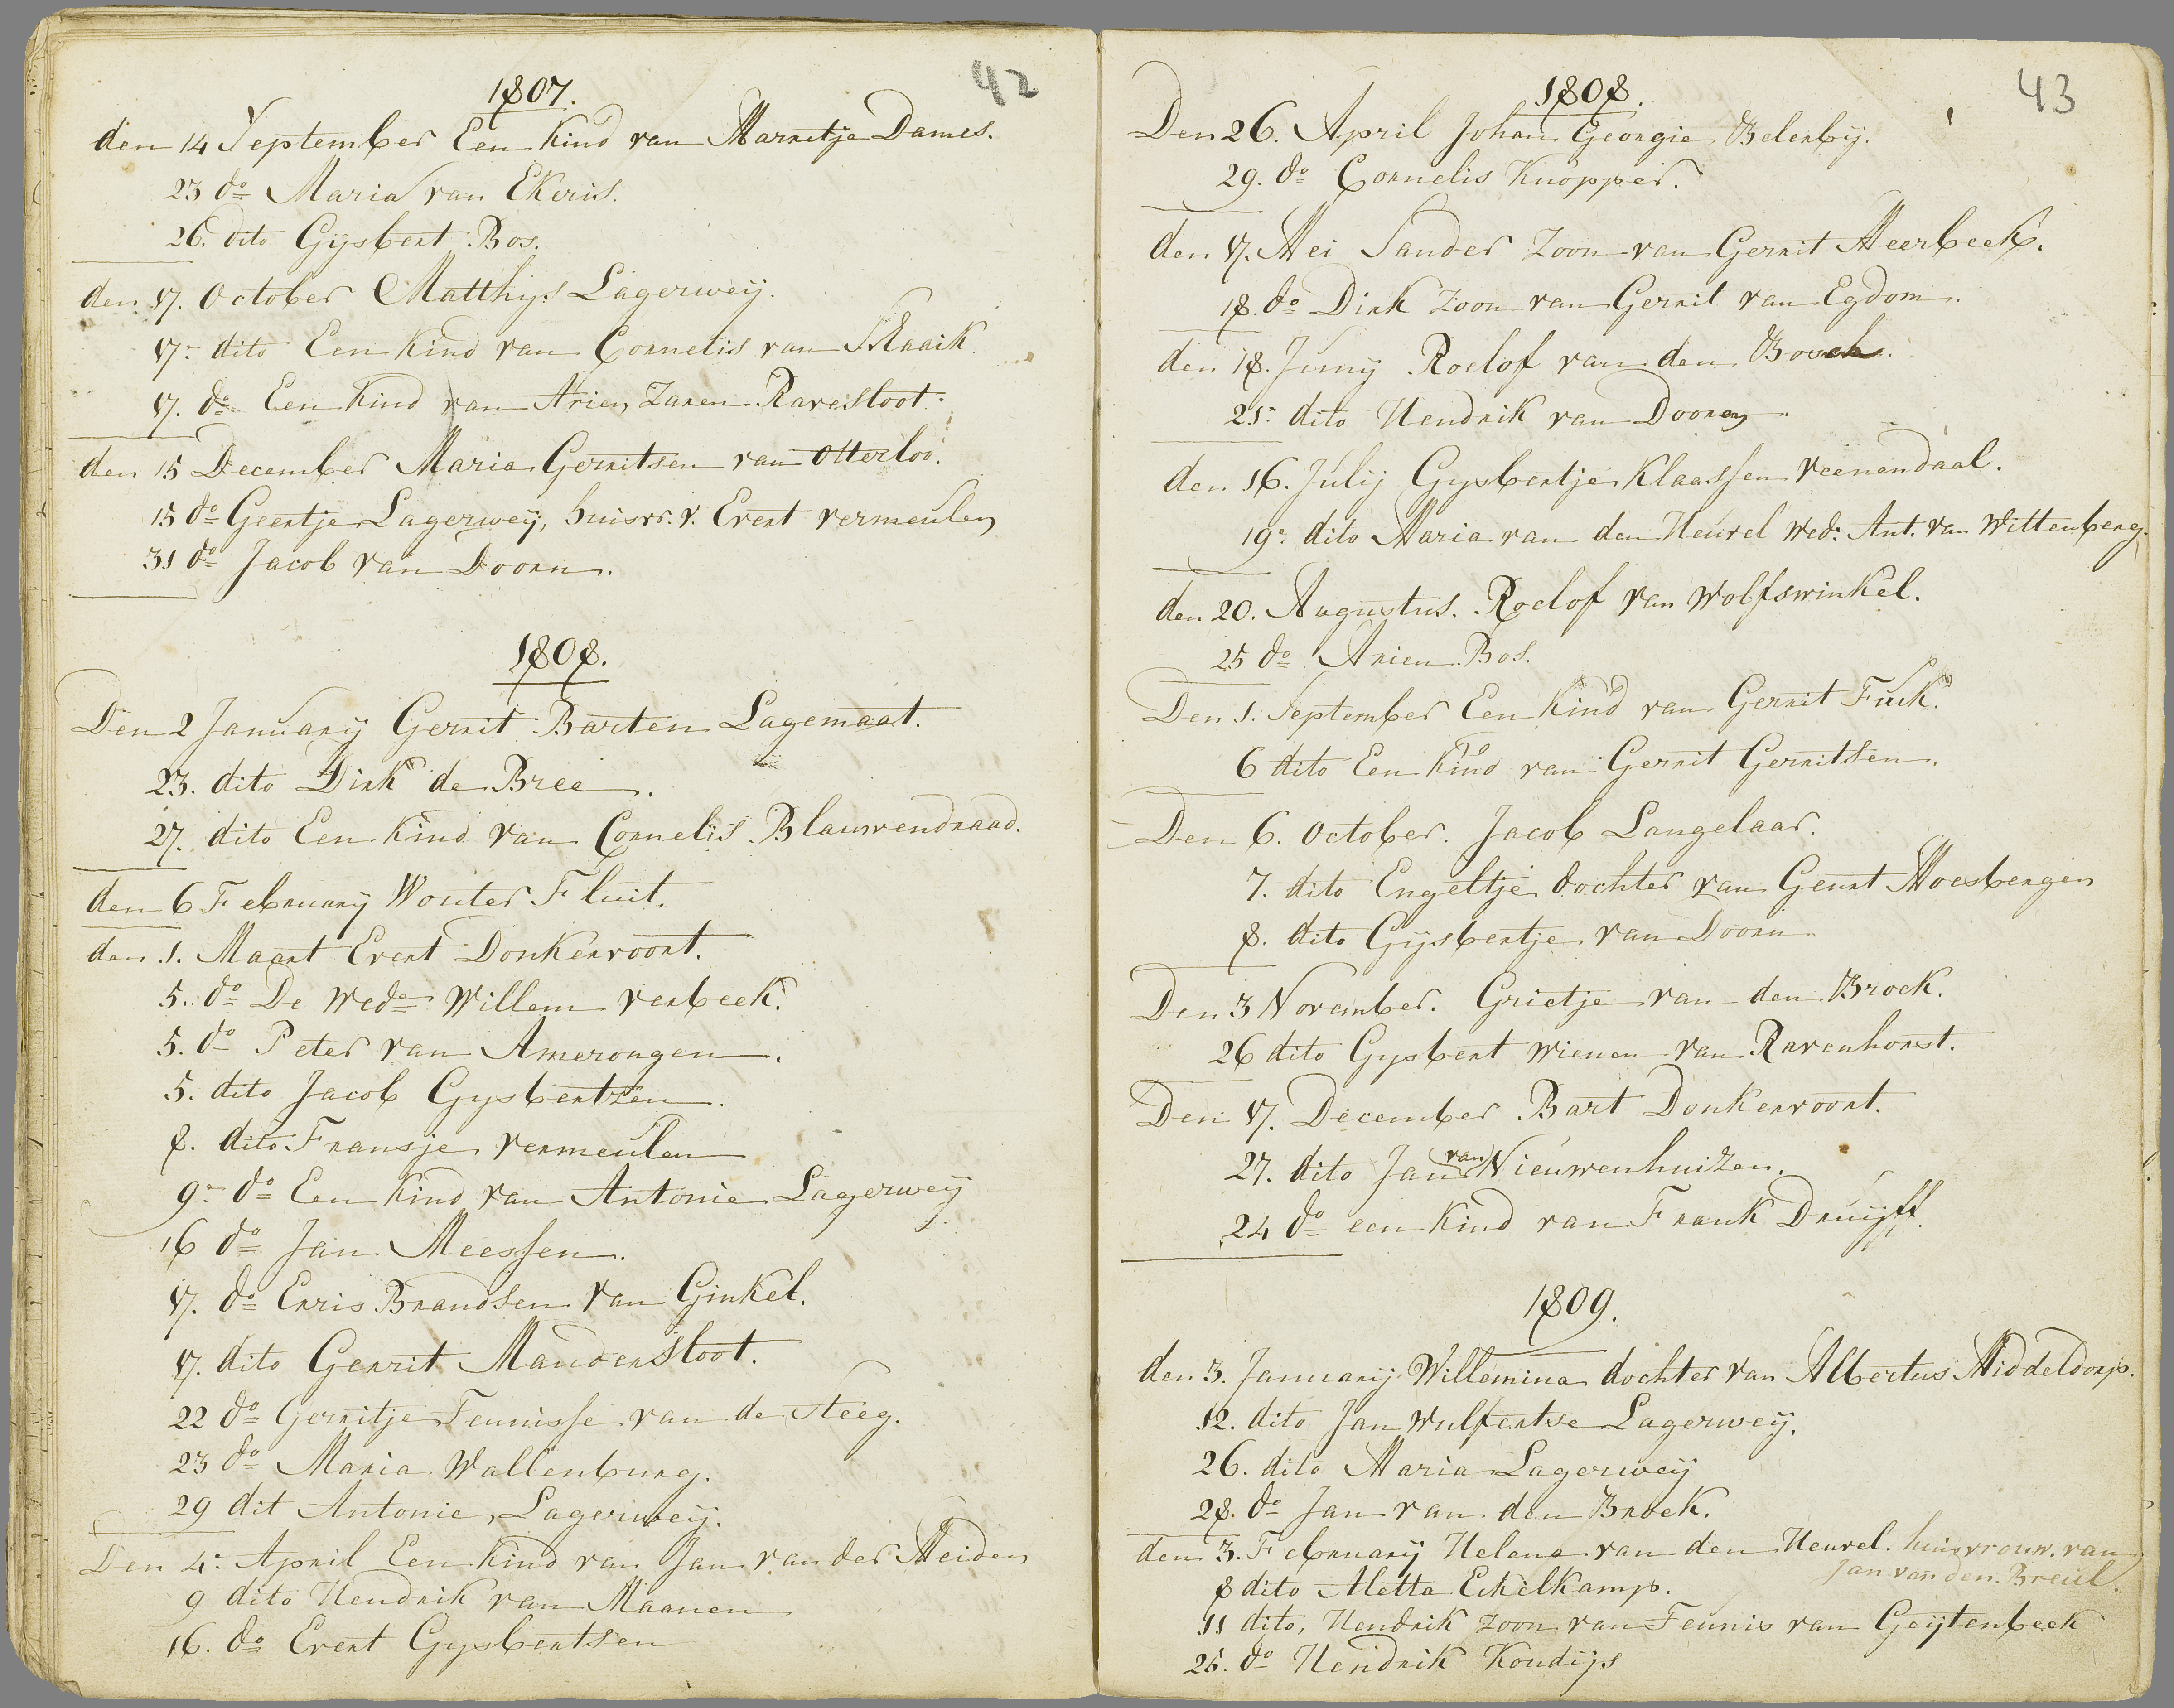 42
1807.
den 14 September Een Kind van Marritje Dames.
23 do Maria van Ekeris.
26. dito Gijsbert Bos.
den 17. October Matthijs Lagerweij.
17- dito Een Kind van Cornelis van Maaik.
17. do Een Kind van Arien Zaren Ravesloot.
den 15 December Maria Gerritsen van Otterloo.
15 do Geertje Lagerweij, huisvr. v. Evert vermeulen
31 do Jacob van Doorn.
1808.
Den 2 January Gerrit Barten Lagemaat.
23. dito Dirk de Bree.
27. dito Een Kind van Cornelis Blauwendraad.
den 6 February Wouter Fluit.
den 1. Maart Evert Donkervoort.
5. do De Wede Willem verbeek.
5. do Peter van Amerongen.
5. dito Jacob Gysbertzen.
8. dito Fransje vermeulen
9- do Een Kind van Antonie Lagerweij
16 do Jan Meessen.
17. do Erris Brandsen van Ginkel.
17. dito Gerrit Mandersloot.
22 do Gerritje Teunisse van de Steeg.
23 do Maria Wallenburg.
29 dit Antonie Lagerweij.
Den 4- April Een Kind van Jan van der Meiden
9 dito Hendrik van Maanen
16. do Evert Gysbertsen
43
1808.
Den 26. April Johan Georgie Belenbij.
29. do Cornelis Knopper.
den 17. Mei Sander Zoon van Gerrit Meerbeek.
18. do Dirk Zoon van Gerrit van Egdom.
den 18. Junij Roelof van den Bosch.
25- dito Hendrik van Dooren.
den 16. Julij Gysbertje Klaassen veenendaal.
19- dito Maria van den Heuvel Wed: Ant. van Wittenberg.
den 20. Augustus. Roelof van Wolfswinkel.
25 do Arien Bos.
Den 1. September Een Kind van Gerrit Fuik.
6 dito Een Kind van Gerrit Gerritsen.
Den 6. October. Jacob Langelaar.
7. dito Engeltje dochter van Geurt Moesbergen
8. dito Gijsbertje van Doorn
Den 3 November. Grietje van den Broek.
26 dito Gysbert Wienen van Ravenhorst.
Den 17. December Bart Donkervoort.
27. dito Jan van Nieuwenhuizen.
24 do een Kind van Frank Druijff.
1809.
den 3. January Willemina dochter van Albertus Middeldorp.
12. dito Jan Wulfertse Lagerweij.
26. dito Maria Lagerweij
28. do Jan van den Broek.
den 3. February Helena van den Heuvel. huisvrouw. van
Jan van den Breul.
8 dito Aletta Eikelkamp.
11 dito, Hendrik Zoon van Teunis van Geijtenbeek
25. do Hendrik Koudijs